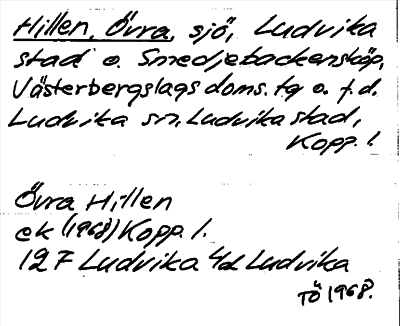 Hillen, Övra, sjö, Ludvika
stad o. Smedjebackensköp,
Västerbergslags doms. tg o. f.d.
Ludvika sn, Ludvika stad,
Kopp. l.
Övra Hillen
ek (1968) Kopp. l.
12 F Ludvika 4d Ludvika
TÖ 1968.